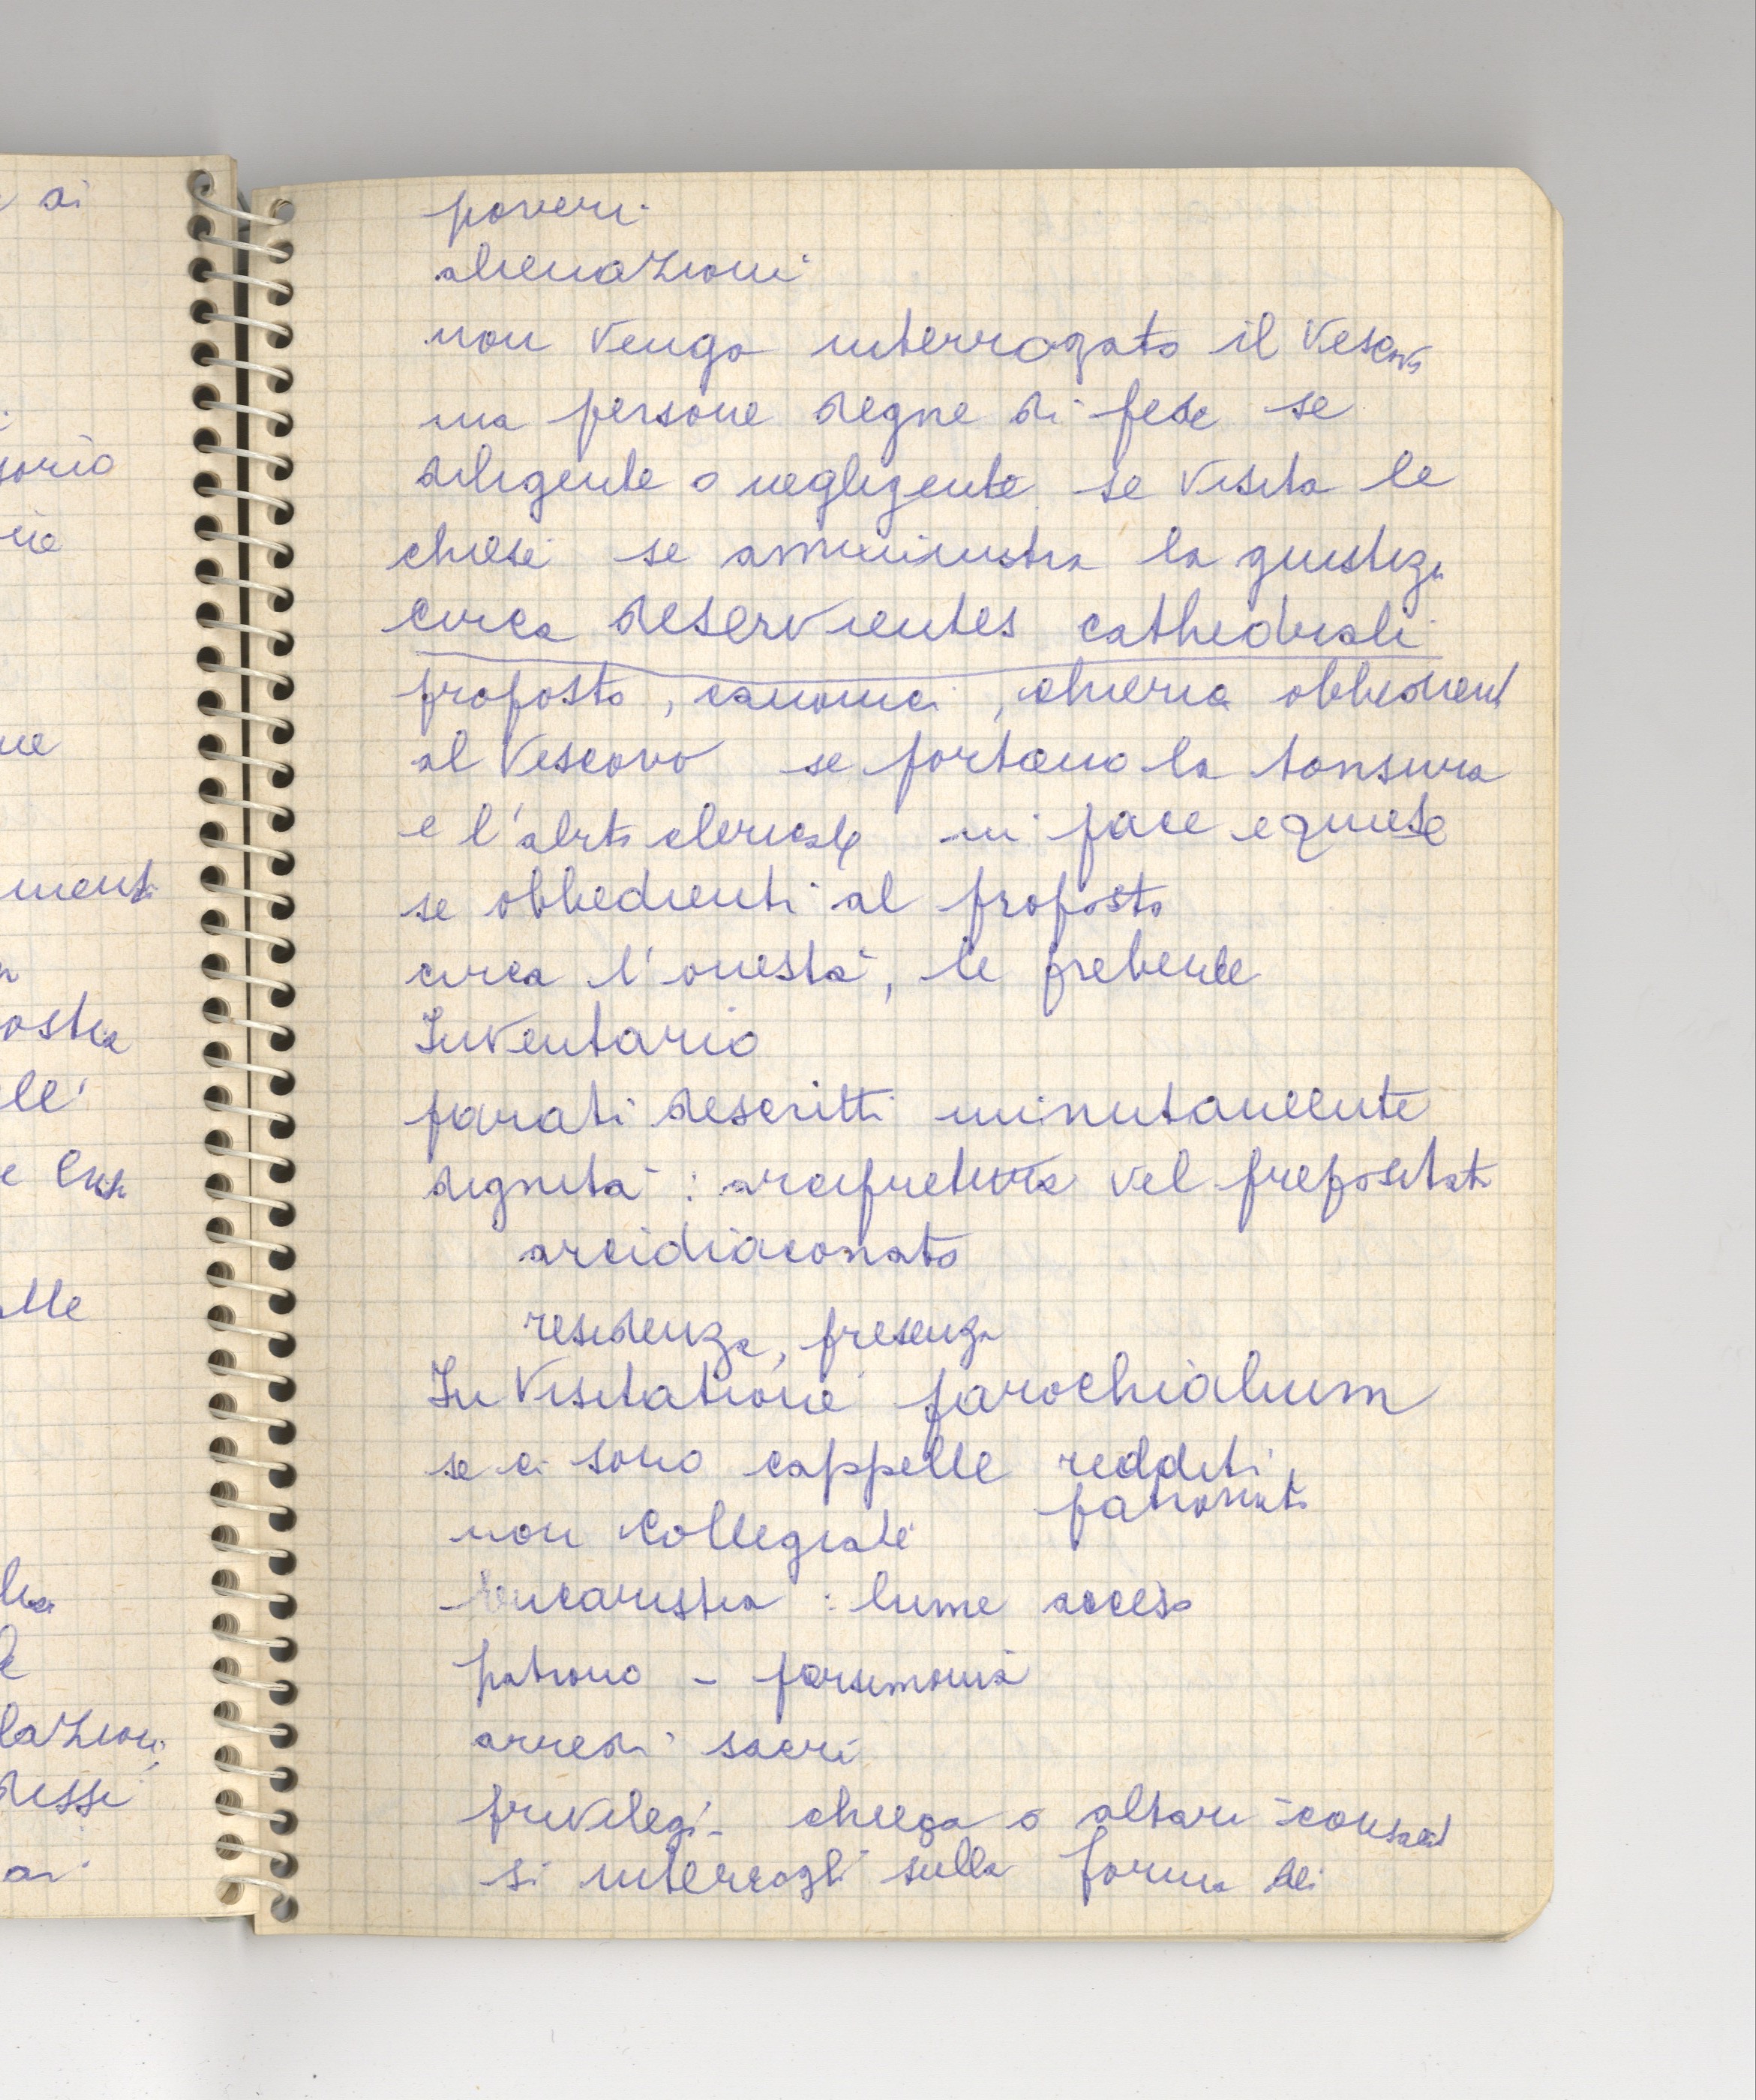 ai
sorio
ne
menti
ostra
ell'
alle
lazioni
dessi
ai
poveri
alienazioni
non venga interrogato il Vescovo
ma persone degne di fede se
diligente o negligente se visita le
chiese se amministra la giustizia
circa deservientes cathedrali
proposto, canonici, chierici obbedienti
al Vescovo se portano la tonsura
e l'abito clericale in pace e quiete
se obbedienti al proposto
circa l'onestà, le prebende
Inventario
parati descritti minutamente
dignità: arcipretura vel prepositato
arcidiaconato
residenza, presenza
In Visitatione parochialium
se ci sono cappelle redditi,
patronato
non collegiate
eucaristia : lume acceso
patrono - parsimonia
arredi sacri
privilegi - chiesa o altare - consacrat
si interroghi sulla forma di